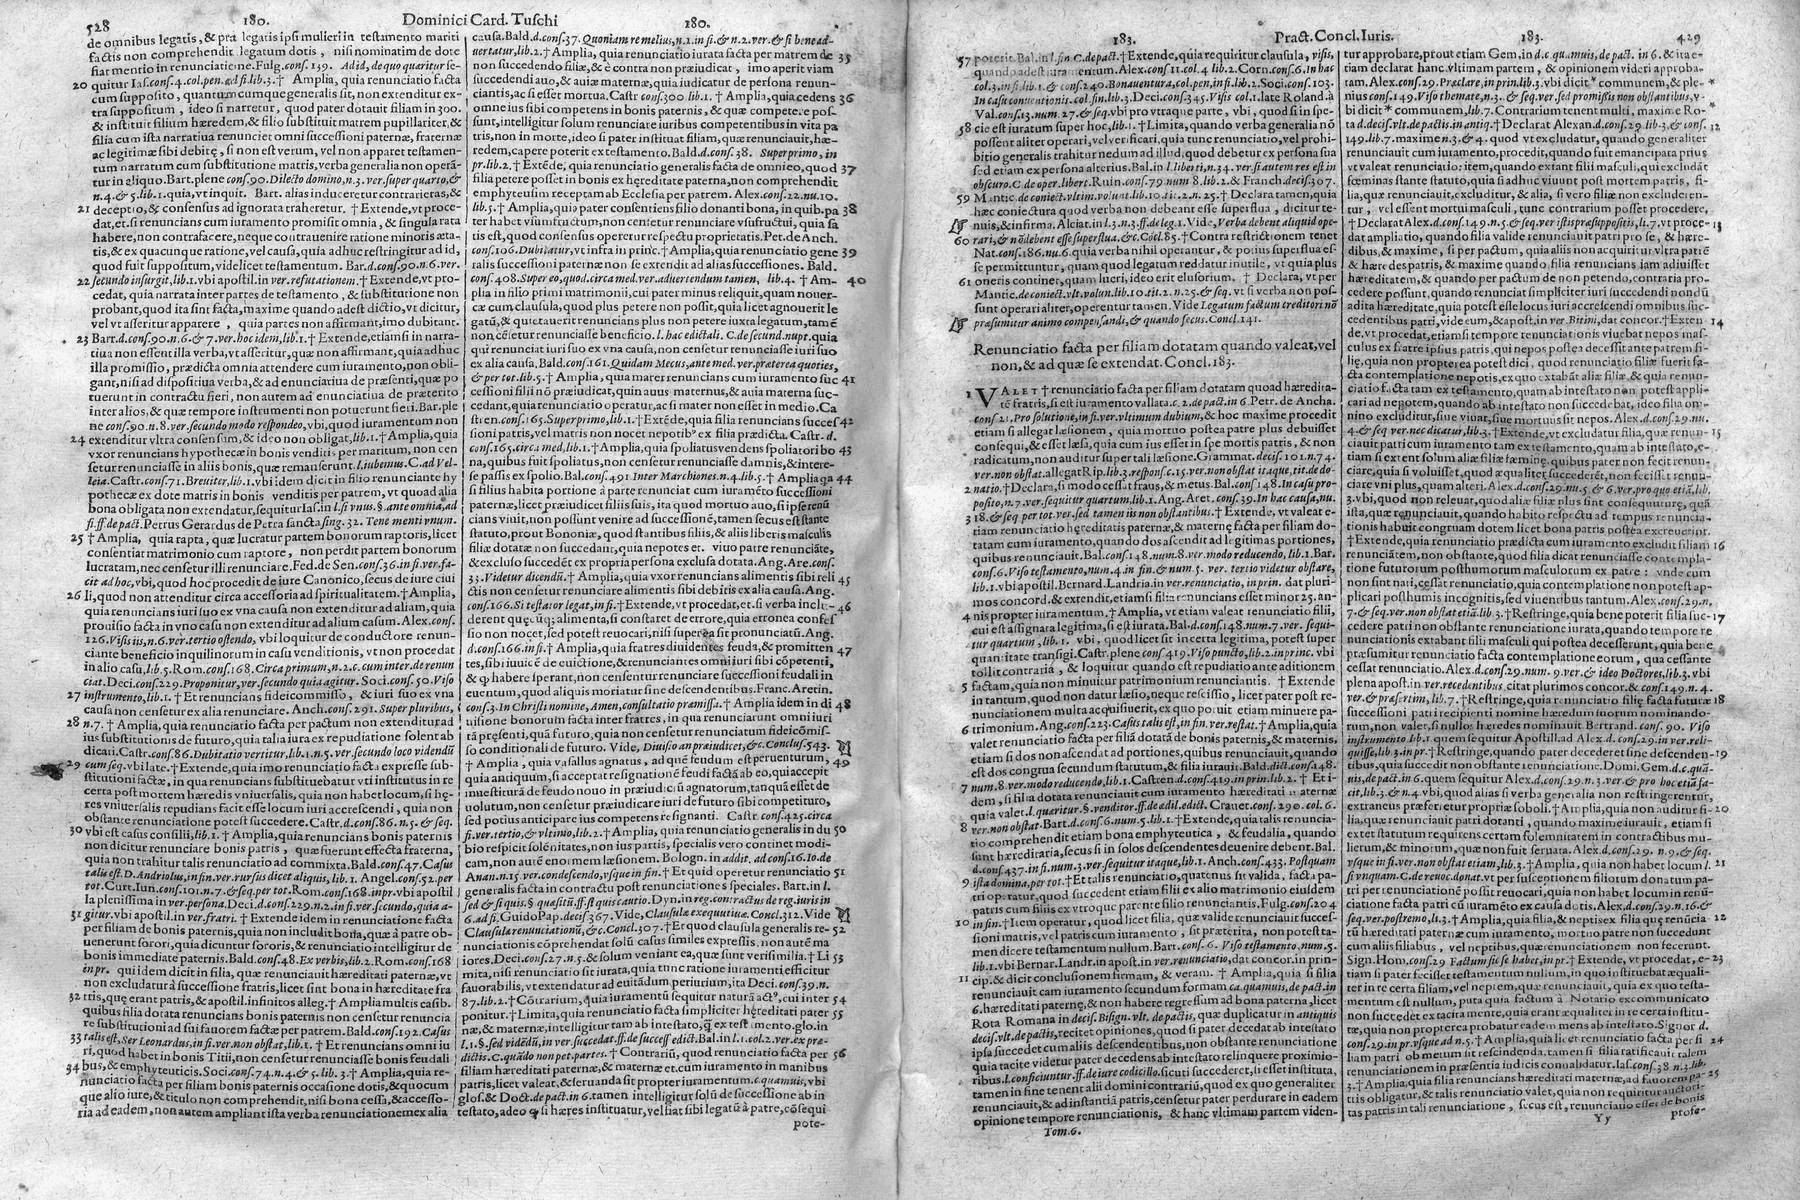 528 180. Dominici Card. Tuschi 180.
de omnibus legatis, & præ legatis ipsi mulieri in testamento mariti
factis non comprehendit legatum dotis, nisi nominatim de dote
fiat mentio in renunciatione. Fulg. cons. 139. Adid, de quo quæritur se-
20 quitur Ias. cons. 4. col. pen. ad fi. lib. 3. † Amplia, quia renunciatio facta
cum supposito, quantumcumque generalis sit, non extenditur ex-
tra suppositum, ideo si narretur, quod pater dotauit filiam in 300.
& instituit filium hæredem, & filio substituit matrem pupillariter, &
filia cum ista narratiua renunciet omni successioni paternæ, fraternæ
ac legitimæ sibi debitę, si non est verum, vel non apparet testamen-
tum narratum cum substitutione matris, verba generalia non operā-
tur in aliquo. Bart. plene cons. 90. Dilecto domino, n. 3. ver. super quarto, &
n. 4. & 5. lib. 1. quia, vt inquit. Bart. alias induceretur contrarietas, &
21 deceptio, & consensus ad ignorata traheretur. † Extende, vt proce-
dat, et. si renuncians cum iuramento promisit omnia, & singula rata
habere, non contrafacere, neque contrauenire ratione minoris æta-
tis, & ex quacunque ratione, vel causa, quia adhuc restringitur ad id,
quod fuit suppositum, videlicet testamentum. Bar. d. cons. 90. n. 6. ver.
22 secundo insurgit, lib. 1. vbi apostil. in ver. refutationem. † Extende, vt pro-
cedat, quia narrata inter partes de testamento, & substitutione non
probant, quod ita sint facta, maxime quando adest dictio, vt dicitur,
vel vt asseritur apparere, quia partes non affirmant, imo dubitant.
23 Bart. d. cons. 90. n. 6. & 7. ver. hoc idem, lib. 1. † Extende, etiamsi in narra-
tiua non essent illa verba, vt asseritur, quæ non affirmant, quia adhuc
illa promissio, prædicta omnia attendere cum iuramento, non obli-
gant, nisi ad dispositiua verba, & ad enunciatiua de præsenti, quæ po
tuerunt in contractu fieri, non autem ad enunciatiua de præterito
inter alios, & quæ tempore instrumenti non potuerunt fieri. Bar. ple
ne cons. 90. n. 8. ver. secundo modo respondeo, vbi, quod iuramentum non
24 extenditur vltra consensum, & ideo non obligat, lib. 1. † Amplia, quia
vxor renuncians hypothecæ in bonis venditis per maritum, non cen
setur renunciasse in aliis bonis, quæ remanserunt. l. iubemus. C. ad Vel-
leia. Castr. cons. 71. Breuiter, lib. 1. vbi idem dicit in filio renunciante hy
pothecæ ex dote matris in bonis venditis per patrem, vt quoad alia
bona obligata non extendatur, sequitur Ias. in l. si vnus. §. ante omnia, ad
fi. ff. de pact. Petrus Gerardus de Petra sancta sing. 32. Tene menti vnum.
25 † Amplia, quia rapta, quæ lucratur partem bonorum raptoris, licet
consentiat matrimonio cum raptore, non perdit partem bonorum
lucratam, nec censetur illi renunciare. Fed. de Sen. cons. 36. in fi. ver. fa-
cit ad hoc, vbi, quod hoc procedit de iure Canonico, secus de iure ciui
26 li, quod non attenditur circa accessoria ad spiritualitatem. † Amplia,
quia renuncians iuri suo ex vna causa non extenditur ad aliam, quia
prouisio facta in vno casu non extenditur ad alium casum. Alex. cons.
126. Visis iis, n. 6. ver. tertio ostendo, vbi loquitur de conductore renun-
ciante beneficio inquilinorum in casu venditionis, vt non procedat
in alio casu, lib. 5. Rom. cons. 168. Circa primum, n. 2. c. cum inter. de renun
ciat. Deci. cons. 229. Proponitur, ver. secundo quia agitur. Soci. cons. 50. Viso
27 instrumento, lib. 1. † Et renuncians fideicommisso, & iuri suo ex vna
causa non censetur ex alia renunciare. Anch. cons. 291. Super pluribus,
28 n. 7. † Amplia, quia renunciatio facta per pactum non extenditur ad
ius substitutionis de futuro, quia talia iura ex repudiatione solent ab
dicari. Castr. cons. 86. Dubitatio vertitur, lib. 1. n. 5. ver. secundo loco videndū
29 cum seq. vbi late. † Extende, quia imo renunciatio facta expresse sub-
stitutioni factæ, in qua renuncians substituebatur vti institutus in re
certa post mortem hæredis vniuersalis, quia non habet locum, si hę-
res vniuersalis repudians facit esse locum iuri accrescendi, quia non
obstante renunciatione potest succedere. Castr. d. cons. 86. n. 5. & seq.
30 vbi est casus consilii, lib. 1. † Amplia, quia renuncians bonis paternis
non dicitur renunciare bonis patris, quæ fuerunt effecta fraterna,
quia non trahitur talis renunciatio ad commixta. Bald. cons. 47. Casus
talis est. D. Andriolus, in fin. ver. rursus dicet aliquis, lib. 1. Angel. cons. 52. per
tot. Curt. Iun. cons. 101. n. 7. & seq. per tot. Rom. cons. 168. in pr. vbi apostil
la plenissima in ver. persona. Deci. d. cons. 229. n. 2. in fi. ver. secundo, quia a-
31 gitur. vbi apostil. in ver. fratri. † Extende idem in renunciatione facta
per filiam de bonis paternis, quia non includit bona, quæ à patre ob-
uenerunt sorori, quia dicuntur sororis, & renunciatio intelligitur de
bonis immediate paternis. Bald. cons. 48. Ex verbis, lib. 2. Rom. cons. 168
in pr. qui idem dicit in filia, quæ renunciauit hæreditati paternæ, vt
non excludatur à successione fratris, licet sint bona in hæreditate fra
32 tris, quę erant patris, & apostil. infinitos alleg. † Amplia multis casib.
quibus filia dotata renuncians bonis paternis non censetur renuncia
re substitutioni ad sui fauorem factæ per patrem. Bald. cons. 192. Casus
33 talis est, Ser Leonardus, in fi. ver. non obstat, lib. 1. † Et renuncians omni iu
ri, quod habet in bonis Titii, non censetur renunciasse bonis feudali
34 bus, & emphyteuticis. Soci. cons. 74. n. 4. & 5. lib. 3. † Amplia, quia re-
nunciatio facta per filiam bonis paternis occasione dotis, & quocum
que alio iure, & titulo non comprehendit, nisi bona cessa, & accesso-
ria ad eadem, non autem ampliant ista verba renunciationem ex alia
causa. Bald. cons. 37. Quoniam re melius, n. 1. in fi. & n. 2. ver. & si bene ad-
uertatur, lib. 2. † Amplia, quia renunciatio iurata facta per matrem de 35
non succedendo filiæ, & è contra non præiudicat, imo aperit viam
succedendi auo, & auiæ maternæ, quia iudicatur de persona renun-
ciantis, ac si esset mortua. Castr. cons. 300. lib. 1. † Amplia, quia cedens 36
omne ius sibi competens in bonis paternis, & quæ competere pos-
sunt, intelligitur solum renunciare iuribus competentibus in vita pa
tris, non in morte, ideo si pater instituat filiam, quæ renunciauit, hæ-
redem, capere poterit ex testamento. Bald. d. cons. 38. Super primo, in
pr. lib. 2. † Extēde, quia renunciatio generalis facta de omni eo, quod 37
filia petere posset in bonis ex hęreditate paterna, non comprehendit
emphyteusim receptam ab Ecclesia per patrem. Alex. cons. 22. nu. 10.
lib. 5. † Amplia, quia pater consentiens filio donanti bona, in quib. pa 38
ter habet vsumfructum, non censetur renunciare vsufructui, quia sa
tis est, quod consensus operetur respectu proprietatis. Pet. de Anch.
cons. 106. Dubitatur, vt infra in princ. † Amplia, quia renunciatio gene 39
ralis successioni paternæ non se extendit ad alias successiones. Bald.
cons. 408. Super eo, quod. circa med. ver. aduertendum tamen, lib. 4. † Am- 40
plia in filio primi matrimonii, cui pater minus reliquit, quam nouer-
cæ cum clausula, quod plus petere non possit, quia licet agnouerit le
gatū, & quietauerit renuncians plus non petere iuxta legatum, tamē
non cēsetur renunciasse beneficio. l. hac edictali. C. de secund. nupt. quia
qui renunciat iuri suo ex vna causa, non censetur renunciasse iuri suo
ex alia causa. Bald. cons. 161. Quidam Mecus, ante med. ver. præterea quoties,
& per tot. lib. 5. † Amplia, quia mater renuncians cum iuramento suc 41
cessioni filii nō præiudicat, quin auus maternus, & auia materna suc-
cedant, quia renunciatio operatur, ac si mater non esset in medio. Ca
stren. cons. 165. Super primo, lib. 1. † Extēde, quia si filia renunciet succes 42
sioni patris, vel matris non nocet nepotib⁹ ex filia prædicta. Castr. d.
cons. 165. circa med. lib. 1. † Amplia, quia spoliatus vendens spoliatori bo 43
na, quibus fuit spoliatus, non censetur renunciasse damnis, & interes-
se passis ex spolio. Bal. cons. 491 Inter Marchiones. n. 4. lib. 5. † Amplia qā 44
si filius habita portione à parte renunciat cum iuramēto successioni
paternæ, licet præiudicet filiis suis, ita quod mortuo auo, si ipse renū
cians viuit, non possunt venire ad successionē, tamen secus est stante
statuto, prout Bononiæ, quod stantibus filiis, & aliis liberis masculis
filiæ dotatæ non succedant, quia nepotes et. viuo patre renunciāte,
& excluso succedēt ex propria persona exclusa dotata. Ang. Are. cons.
33. Videtur dicendū. † Amplia, quia vxor renuncians alimentis sibi reli 45
ctis non censetur renunciare alimentis sibi debitis ex alia causa. Ang.
cons. 166. Si testator legat, in fi. † Extende, vt procedat, et. si verba inclu- 46
derent quęcūq; alimenta, si constaret de errore, quia erronea confes
sio non nocet, sed potest reuocari, nisi super ea sit pronunciatū. Ang.
d. cons. 166. in fi. † Amplia, quia fratres diuidentes feuda, & promitten 47
tes, sibi inuicē de euictione, & renunciantes omni iuri sibi cōpetenti,
& ꝙ habere sperant, non censentur renunciare successioni feudali in
euentum, quod aliquis moriatur sine descendentibus. Franc. Aretin.
cons. 3. In Christi nomine, Amen, consultatio præmissa. † Amplia idem in di 48
uisione bonorum facta inter fratres, in qua renunciarunt omni iuri
tā presenti, quā futuro, quia non censentur renunciatum fideicōmis-
so conditionali de futuro. Vide, Diuisio an præiudicet, &c. Conclus. 543.
† Amplia, quia vasallus agnatus, ad quē feudum est peruenturum, 49
quia antiquum, si acceptat resignationē feudi factā ab eo, qui accepit
inuestiturā de feudo nouo in præiudiciū agnatorum, tanquā esset de
uolutum, non censetur præiudicare iuri de futuro sibi competituro,
sed potius anticipare ius competens resignanti. Castr. cons. 425. circa
fi. ver. tertio, & vltimo, lib. 2. † Amplia, quia renunciatio generalis in du 50
bio respicit solēnitates, non ius partis, specialis vero continet modi-
cam, non autē enormem læsionem. Bologn. in addit. ad cons. 16. Io. de
Anan. n. 15. ver. condescendo, vsque in fin. † Et quid operetur renunciatio 51
generalis facta in contractu post renunciationes speciales. Bart. in l.
sed & si quis. §. quæsitū, ff. si quis cautio. Dyn. in reg. contractus de reg. iuris in
6. ad fi. Guido Pap. decis 367. Vide, Clausulæ exequutiuæ. Concl. 312. Vide
Clausula renunciationū, &c. Concl. 307. † Et quod clausula generalis re- 52
nunciationis cōprehendat solū casus similes expressis, non autē ma
iores. Deci. cons. 27. n. 5. & solum veniant ea, quæ sunt verisimilia. † Li 53
mita, nisi renunciatio sit iurata, quia tunc ratione iuramenti efficitur
fauorabilis, vt extendatur ad euitādum periurium, ita Deci. cons. 39. n.
87. lib. 2. † Cōtrarium, quia iuramentū sequitur naturā act⁹, cui inter 54
ponitur. † Limita, quia renunciatio facta simpliciter hęreditati pater 55
næ, & maternæ, intelligitur tam ab intestato, q̄ ex testamento. glo. in
l. 1. §. sed vidēdū, in ver. succedat. ff. de success. edict. Bal. in l. 1. col. 2. ver. ex præ-
dictis. C. quādo non pet. partes. † Contrariū, quod renunciatio facta per 56
filiam hæreditati paternæ, & maternæ et. cum iuramento in manibus
patris, licet valeat, & seruanda sit propter iuramentum. c. quamuis, vbi
glos. & Doct. de pact. in 6. tamen intelligitur solū de successione ab in
testato, adeo ꝙ si hæres instituatur, vel fiat sibi legatū à patre, cōsequi
pote-
183. Pract. Concl. Iuris. 183. 429
57 poterit. Bal. in l. fin. C. de pact. † Extende, quia requiritur clausula, visis,
quando adest iuramentum. Alex. cons. 11. col. 4. lib. 2. Corn. cons. 6. In hac
col. 3. in fi. lib. 1. & cons. 240. Bonauentura, col. pen. in fi. lib. 2. Soci. cons. 103.
In casu conuentionis. col. fin. lib. 3. Deci. cons. 345. Visis col. 1. late Roland. à
Val. cons. 13. num. 27. & seq. vbi pro vtraque parte, vbi, quod si in spe-
58 cie est iuratum super hoc, lib. 1. † Limita, quando verba generalia nō
possent aliter operari, vel verificari, quia tunc renunciatio, vel prohi-
bitio generalis trahitur nedum ad illud, quod debetur ex persona sua
sed etiam ex persona alterius. Bal. in l. liberti, n. 34. ver. si autem res est in
obscuro. C. de oper. libert. Ruin. cons. 79. num. 8. lib. 2. & Franch. decis. 307.
59 Mantic. de coniect. vltim. volunt. lib. 10. tit. 2. n. 25. † Declara tamen, quia
hæc coniectura quod verba non debeant esse superflua, dicitur te-
nuis, & infirma. Alciat. in l. 3. n. 3. ff. de leg. 1. Vide, Verba debent aliquid ope-
60 rari, & nō debent esse superflua. &c. Cōcl. 85. † Contra restrictionem tenet
Nat. cons. 186. nu. 6. quia verba nihil operantur, & potius superflua es-
se permittuntur, quam quod legatum reddatur inutile, vt quia plus
61 oneris continet, quam lucri, ideo erit elusorium. † Declara, vt per
Mantic. de coniect. vlt. volun. lib. 10. tit. 2. n. 25. & seq. vt si verba non pos-
sunt operari aliter, operentur tamen. Vide Legatum factum creditori nō
præsumitur animo compensandi, & quando secus. Concl. 141.
Renunciatio facta per filiam dotatam quando valeat, vel
non, & ad quæ se extendat. Concl. 183.
1 VALET † renunciatio facta per filiam dotatam quoad hæredita-
tē fratris, si est iuramento vallata. c. 2. de pact. in 6. Petr. de Ancha.
cons. 21. Pro solutione, in fi. ver. vltimum dubium, & hoc maxime procedit
etiam si allegat læsionem, quia mortuo postea patre plus debuisset
consequi, & esset læsa, quia cum ius esset in spe mortis patris, & non
radicatum, non auditur super tali læsione. Grammat. decis. 101. n. 74.
ver. non obstat. allegat Rip. lib. 3. respons. c. 15. ver. non obstat itaque, tit. de do-
2 natio. † Declara, si modo cesset fraus, & metus. Bal. cons. 148. In casu pro-
posito, n. 7. ver. sequitur quartum, lib. 1. Ang. Aret. cons. 39. In hac causa, nu.
3 18. & seq. per tot. ver. sed tamen iis non obstantibus. † Extende, vt valeat e-
tiam renunciatio hęreditatis paternæ, & maternę facta per filiam do-
tatam cum iuramento, quando dos ascendit ad legitimas portiones,
quibus renunciauit. Bal. cons. 148. num. 8. ver. modo reducendo, lib. 1. Bar.
cons. 6. Viso testamento, num. 4. in fin. & num. 5. ver. tertio videtur obstare,
lib. 1. vbi apostil. Bernard. Landria. in ver. renunciatio, in prin. dat pluri-
mos concord. & extendit, etiamsi filia renuncians esset minor 25. an-
4 nis propter iuramentum. † Amplia, vt etiam valeat renunciatio filii,
cui est assignata legitima, si est iurata. Bal. d. cons. 148. num. 7. ver. sequi-
tur quartum, lib. 1. vbi, quod licet sit incerta legitima, potest super
quantitate transigi. Castr. plene cons. 419. Viso puncto, lib. 2. in princ. vbi
tollit contraria, & loquitur quando est repudiatio ante aditionem
5 factam, quia non minuitur patrimonium renunciantis. † Extende
in tantum, quod non datur læsio, neque rescissio, licet pater post re-
nunciationem multa acquisiuerit, ex quo potuit etiam minuere pa-
6 trimonium. Ang. cons. 223. Casus talis est, in fin. ver. restat. † Amplia, quia
valet renunciatio facta per filiā dotatā de bonis paternis, & maternis,
etiam si dos non ascendat ad portiones, quibus renunciauit, quando
est dos congrua secundum statutum, & filia iurauit. Bald. dict. cons. 148.
7 num. 8. ver. modo reducendo, lib. 1. Castren. d. cons. 419. in prin. lib. 2. † Et i-
dem, si filia dotata renunciauit cum iuramento hæreditati maternæ
quia valet. l. queritur. §. venditor. ff. de ædil. edict. Crauet. cons. 290. col. 6.
8 ver. non obstat. Bart. d. cons. 6. num. 5. lib. 1. † Extende, quia talis renuncia-
tio comprehendit etiam bona emphyteutica, & feudalia, quando
sunt hæreditaria, secus si in solos descendentes deuenire debent. Bal.
d. cons. 437. in fi. num. 3. ver. sequitur itaque, lib. 1. Anch. cons. 433. Postquam
9 ista domina, per tot. † Et talis renunciatio, quatenus sit valida, facta pa-
tri operatur, quod succedent etiam filii ex alio matrimonio eiusdem
patris cum filiis ex vtroque parente filio renunciantis. Fulg. cons. 204
10 in fin. † Item operatur, quod licet filia, quæ valide renunciauit succes-
sioni matris, vel patris cum iuramento, sit præterita, non potest ta-
men dicere testamentum nullum. Bart. cons. 6. Viso testamento, num. 5.
lib. 1. vbi Bernar. Landr. in apost. in ver. renunciatio, dat concor. in prin-
11 cip. & dicit conclusionem firmam, & veram. † Amplia, quia si filia
renunciauit cum iuramento secundum formam ca. quamuis, de pact. in
6. hæreditati paternę, & non habere regressum ad bona paterna, licet
Rota Romana in decis. Bisign. vlt. de pactis, quæ duplicatur in antiquis
decis. vlt. de pactis, recitet opiniones, quod si pater decedat ab intestato
ipsa succedet cum aliis descendentibus, non obstante renunciatione
quia tacite videtur pater decedens ab intestato relinquere proximio-
ribus. l. conficiuntur. ff. de iure codicillo. sicuti succederet, si esset instituta,
tamen in fine tenent alii domini contrariū, quod ex quo generaliter
renunciauit, & ad instantiā patris, censetur pater perdurare in eadem
opinione tempore renunciationis, & hanc vltimam partem viden-
Tom. 6.
tur approbare, prout etiam Gem. in d. c. quamuis, de pact. in 6. & ita e-
tiam declarat hanc vltimam partem, & opinionem videri approba-
tam. Alex. cons. 29. Præclare, in prin. lib. 3. vbi dicit * communem, & ple-
nius cons. 149. Viso themate, n. 3. & seq. ver. sed promissis non obstantibus, v-
bi dicit * communem, lib. 7. Contrarium tenent multi, maxime Ro-
ta d. decis. vlt. de pactis. in antiq. † Declarat Alexan. d. cons. 29. lib. 3. & cons. 12
149. lib. 7. maxime n. 3. & 4. quod vt excludatur, quando generaliter
renunciauit cum iuramento, procedit, quando fuit emancipata prius
vt valeat renunciatio: item, quando extant filii masculi, qui excludunt
fœminas stante statuto, quia si adhuc viuunt post mortem patris, fi-
lia, quæ renunciauit, excluditur, & alia, si vero filiæ non excluderen-
tur, vel essent mortui masculi, tunc contrarium posset procedere,
† Declarat Alex. d. cons. 149. n. 5. & seq. ver. istis præsuppositis, li. 7. vt proce- 13
dat ampliatio, quando filia valide renunciauit patri pro se, & hære-
dibus, & maxime, si per pactum, quia alias non acquiritur vltra patrē
& hæredes patris, & maxime quando filia renuncians iam adiuisset
hæreditatem, & quando per pactum de non petendo, contraria pro-
cedere possunt, quando renunciat simpliciter iuri succedendi nondū
adita hæreditate, quia potest esse locus iuri accrescendi omnibus suc-
cedentibus patri, vide eum, & apost. in ver. Bitini, dat concor. † Exten- 14
de, vt procedat, etiamsi tempore renunciationis viuebat nepos mas-
culus ex fratre ipsius patris, qui nepos postea decessit ante patrem fi-
liæ, quia non propterea potest dici, quod renunciatio filiæ fuerit fa-
cta contemplatione nepotis, ex quo extabāt aliæ filiæ, & quia renun-
ciatio facta tam ex testamento, quam ab intestato non potest appli-
cari ad nepotem, quando ab intestato non succedebat, ideo filia om-
nino excluditur, siue viuat, siue mortuus sit nepos. Alex. d. cons. 29. nu.
4. & seq. ver. nec dicatur, lib. 3. † Extende, vt excludatur filia, quæ renun- 15
ciauit patri cum iuramento tam ex testamento, quam ab intestato, e-
tiam si extent solum aliæ filiæ fœminę, quibus pater non fecit renun-
ciare, quia si voluisset, quod æqualiter succederent, fecisset etiam re-
nunciare vel plus, quam alteri. Alex. d. cons. 29. nu. 5. & 6. ver. pro quo etiā, lib.
3. vbi, quod non releuat, quod aliæ filiæ plus sint consequuturæ, quā
ista, quæ renunciauit, quando habito respectu ad tempus renuncia-
tionis habuit congruam dotem licet bona patris postea excreuerint.
† Extende, quia renunciatio prædicta cum iuramento excludit filiam 16
renunciātem, non obstante, quod filia dicat renunciasse contempla-
tione futurorum posthumorum masculorum ex patre: vnde cum
non sint nati, cessat renunciatio, quia contemplatio non potest ap-
plicari posthumis incognitis, sed viuentibus tantum. Alex. d. cons. 29. n.
7. & seq. ver. non obstat etiā, lib. 3. † Restringe, quia bene poterit filia suc- 17
cedere patri non obstante renunciatione iurata, quando tempore re
nunciationis extabant filii masculi qui postea decesserunt, quia bene
præsumitur renunciatio facta contemplatione eorum, qua cessante
cessat renunciatio. Alex. d. cons. 29. num. 9. ver. & ideo Doctores, lib. 3. vbi
plena apost. in ver. recedentibus, citat plurimos concor. & cons. 149. n. 4.
ver. & præsertim, lib. 7. † Restringe, quia renunciatio filię factæ futuræ 18
successioni patri recipienti nomine hæredum suorum non inando-
rum, non valet, si nullus hæredes nominauit. Bertrand. cons. 90. Viso
instrumento lib. 1. quem sequitur Apostill. ad Alex. d. cons. 29. in ver. reli-
quisse, lib. 3. in pr. † Restringe, quando pater decederet sine descenden- 19
tibus, quia succedit non obstante renunciatione. Domi. Gem. d. c. quā-
uis, de pact. in 6. quem sequitur Alex. d. cons. 29. n. 3. ver. & pro hoc etiā fa-
cit, lib. 3. & n. 4. vbi, quod alias si verba generalia non restringerentur,
extraneus præferretur propriæ soboli. † Amplia, quia non auditur fi- 20
lia, quæ renunciauit patri dotanti, quando maxime iurauit, etiam si
extet statutum requirens certam solemnitatem in contractibus mu-
lierum, & minorum, quæ non fuit seruata. Alex. d. cons. 29. n. 9. & seq.
vsque in fi. ver. non obstat etiam, lib. 3. † Amplia, quia non habet locum l. 21
si vnquam. C. de reuoc. donat. vt per susceptionem filiorum donatum pa
tri per renunciationē possit reuocari, quia non habet locum in renū-
ciatione facta patri cū iuramēto ex causa dotis. Alex. d. cons. 29. n. 16. &
seq. ver. postremo, li. 3. † Amplia, quia filia, & neptis ex filia quę renūcia 22
rū hæreditati paternæ cum iuramento, mortuo patre non succedunt
cum aliis filiabus, vel neptibus, quæ renunciationem non fecerunt.
Sign. Hom. cons. 29 Factum sic se habet, in pr. † Extende, vt procedat, e- 23
tiam si pater fecisset testamentum nullum, in quo instituebat æquali-
ter in re certa filiam, vel neptem, quæ renunciauit, quia ex quo testa-
mentum est nullum, puta quia factum à Notario excommunicato
non succedet ex tacita mente, quia erant æqualiter in re certa institu-
tæ, quia non propterea probatur eadem mens ab intestato. Signor. d.
cons. 29. in pr. vsque ad n. 5. † Amplia, quia licet renunciatio facta per fi 24
liam patri ob metum sit rescindenda. tamen si filia ratificauit talem
renunciationem in præsentia iudicis conualidatur. Ias. cons. 38 n. 3. lib.
3. † Amplia, quia filia renuncians hæreditati maternæ, ad fauorem pa- 25
tris obligatur, & talis renunciatio valet, quia non requiritur auctori-
tas patris in tali renunciatione, secus est, renunciatio esset de bonis
Yy profe-